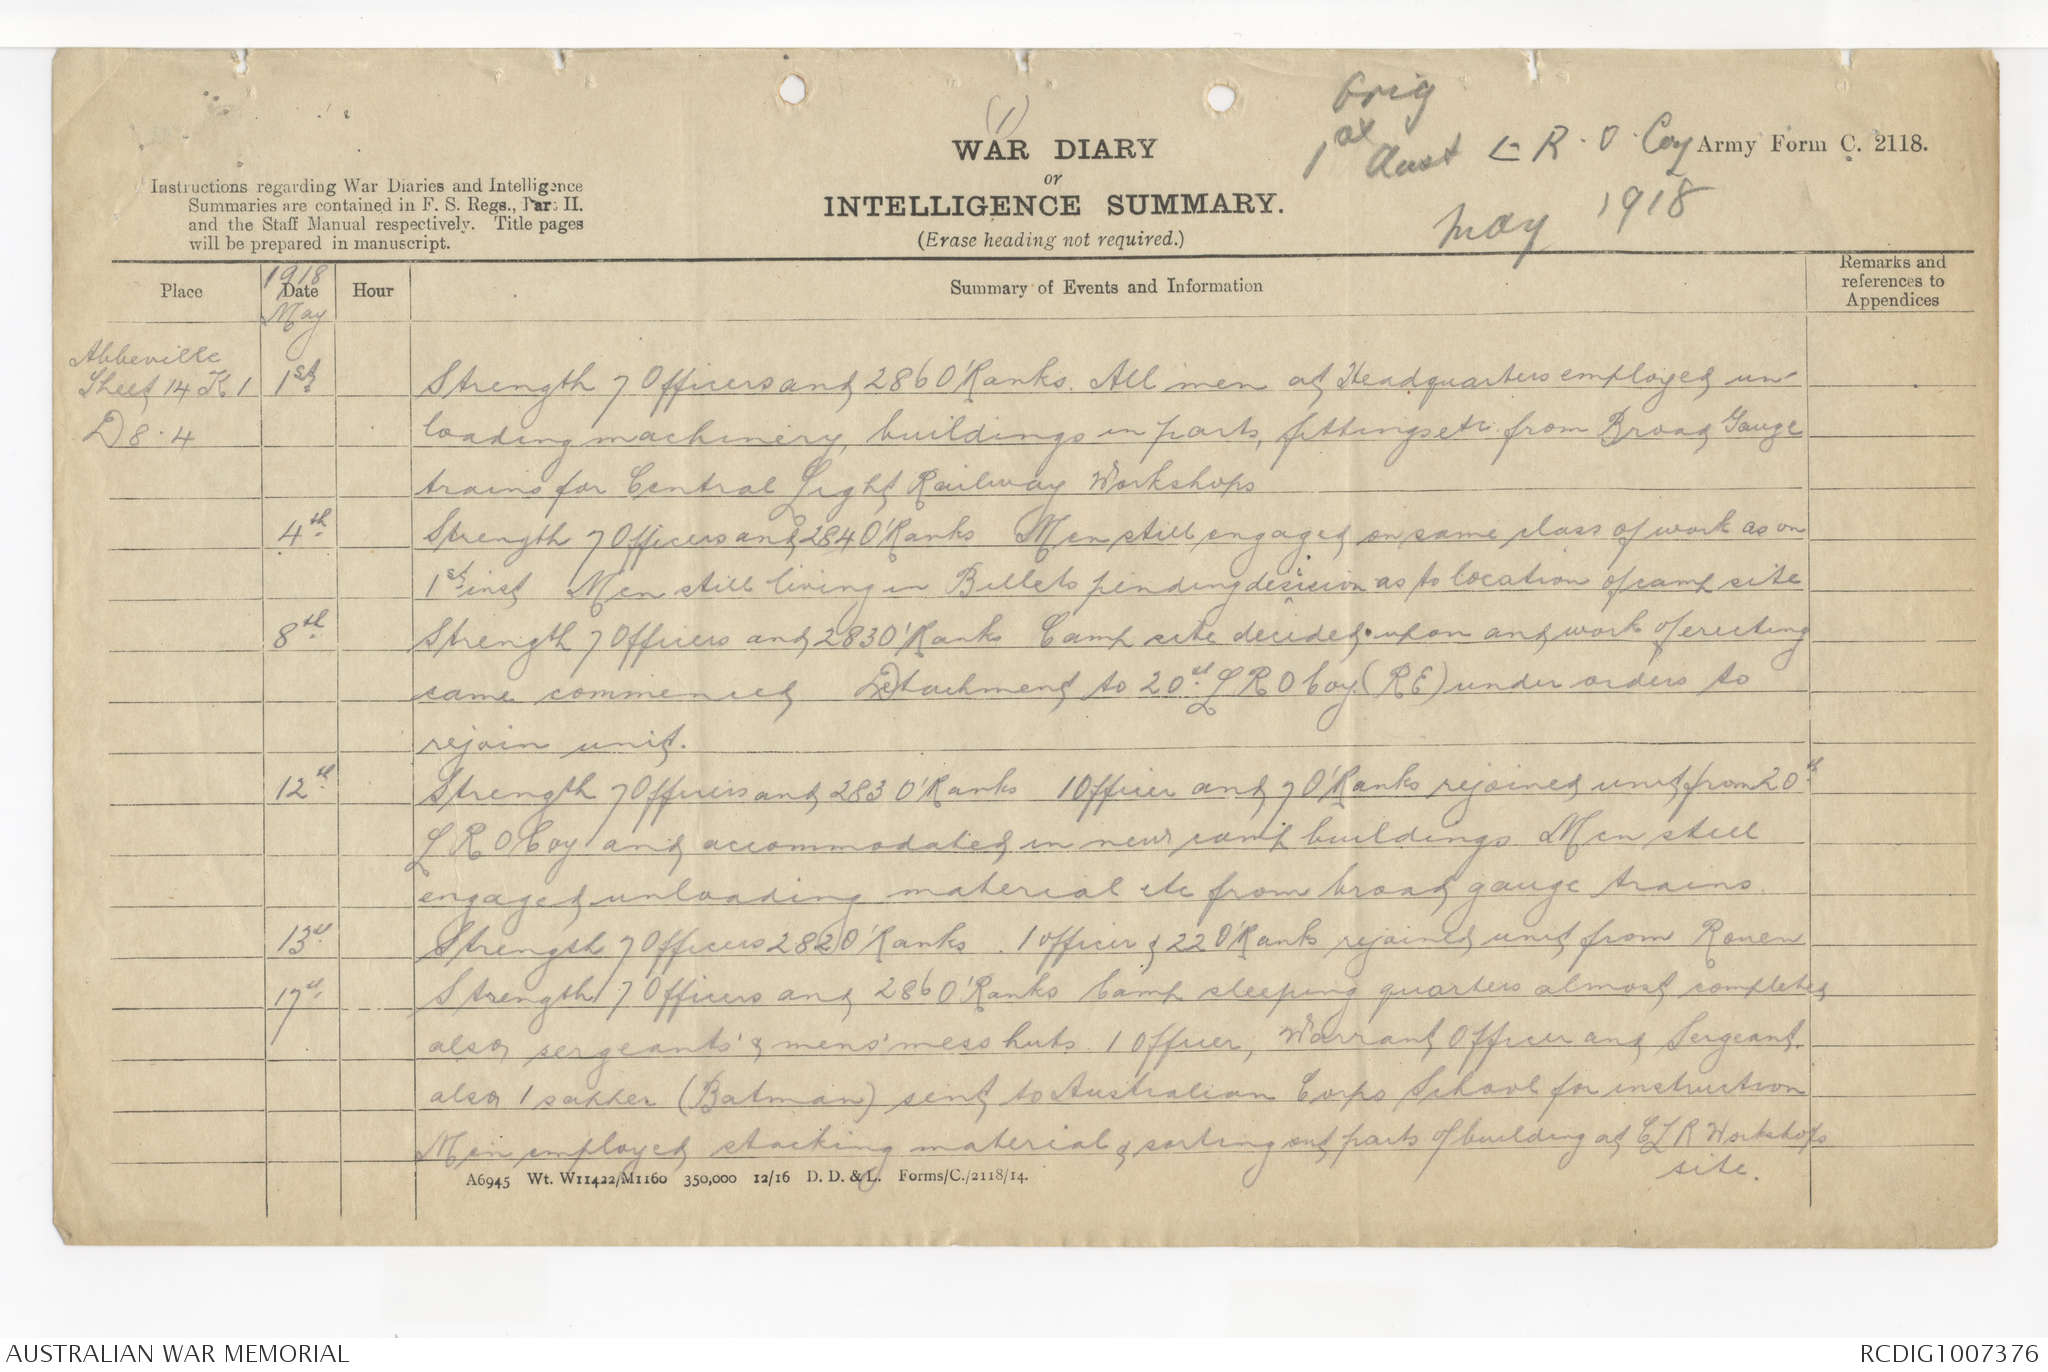 Orig
1st Aust L R O Coy Army Form C. 2118.
May 1918
(1)
WAR DIARY
or
INTELLIGENCE SUMMARY.
(Erase heading not required.)
Instructions regarding War Diaries and Intelligence
Summaries are contained in F. S. Regs., Part II.
and the Staff Manual respectively. Title pages
will be prepared in manuscript.
Place
1918
Date
May
Hour
Summary of Events and Information
Remarks and
references to
Appendices
Abbeville
Sheet 14 K 1 1st Strength 7 Officers and 286 O'Ranks. All men at Headquarters employed un-
D 8.4 loading machinery, buildings in parts, fittings etc from Broad Gauge
trains for Central Light Railway Workshops
4th Strength 7 Officers and 284 O'Ranks Men still engaged on same class of work as on
1st inst Men still living in Billets pending decision as to location of camp site
8th Strength 7 Officers and 283 O'Ranks Camp site decided upon and work of erecting
same commenced Detachment to 20th L R O Coy (RE) under orders to
rejoin unit.
12th Strength 7 Officers and 283 O'Ranks 1 Officer and 70 O'Ranks rejoined unit from 20th
L R O Coy and accommodated in new camp buildings Men still
engaged unloading material etc from broad gauge trains
13th Strength 7 Officers 282 O'Ranks. 1 officer & 22 O'Ranks rejoined unit from Rouen
17th Strength 7 Officers and 286 O'Ranks Camp sleeping quarters almost completed
also sergeants' & mens' mess huts 1 Officer, Warrant Officer and Sergeant.
also 1 sapper (Batman) sent to Australian Corps School for instruction
Men employed stacking material & sorting out parts of building at C L R Workshops
site.
A6945 Wt. W11422/M1160 350,000 12/16 D. D. & L. Forms/C./2118/14.
AUSTRALIAN WAR MEMORIAL
RCDIG1007376